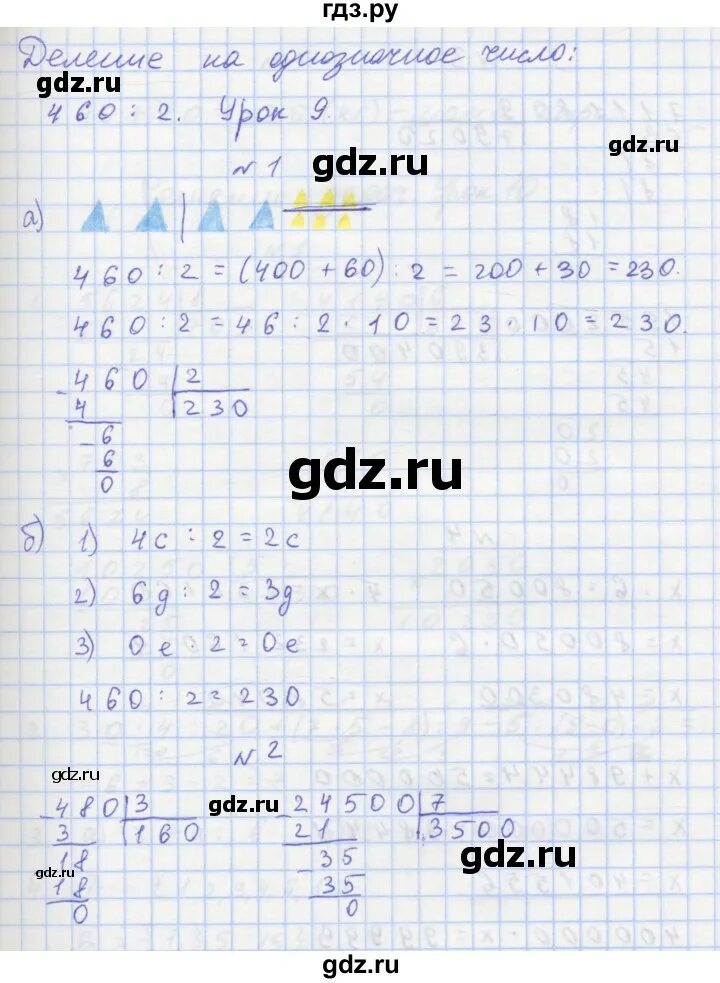 гдз.ру
Деление на однозначное число:
gdz.ru
460 : 2. Урок 9.
gdz.ru
№ 1
а)
460 : 2 = (400 + 60) : 2 = 200 + 30 = 230.
460 : 2 = 46 : 2 · 10 = 23 · 10 = 230.
- 460 | 2
4 | 230
- 6
6
0
gdz.ru
б) 1) 4с : 2 = 2с
2) 6д : 2 = 3д
3) 0е : 2 = 0е
460 : 2 = 230
№ 2
gdz.ru
gdz.ru
- 480 | 3
3 | 160
18
18
0
- 24500 | 7
21 | 3500
- 35
35
0
gdz.ru
gdz.ru